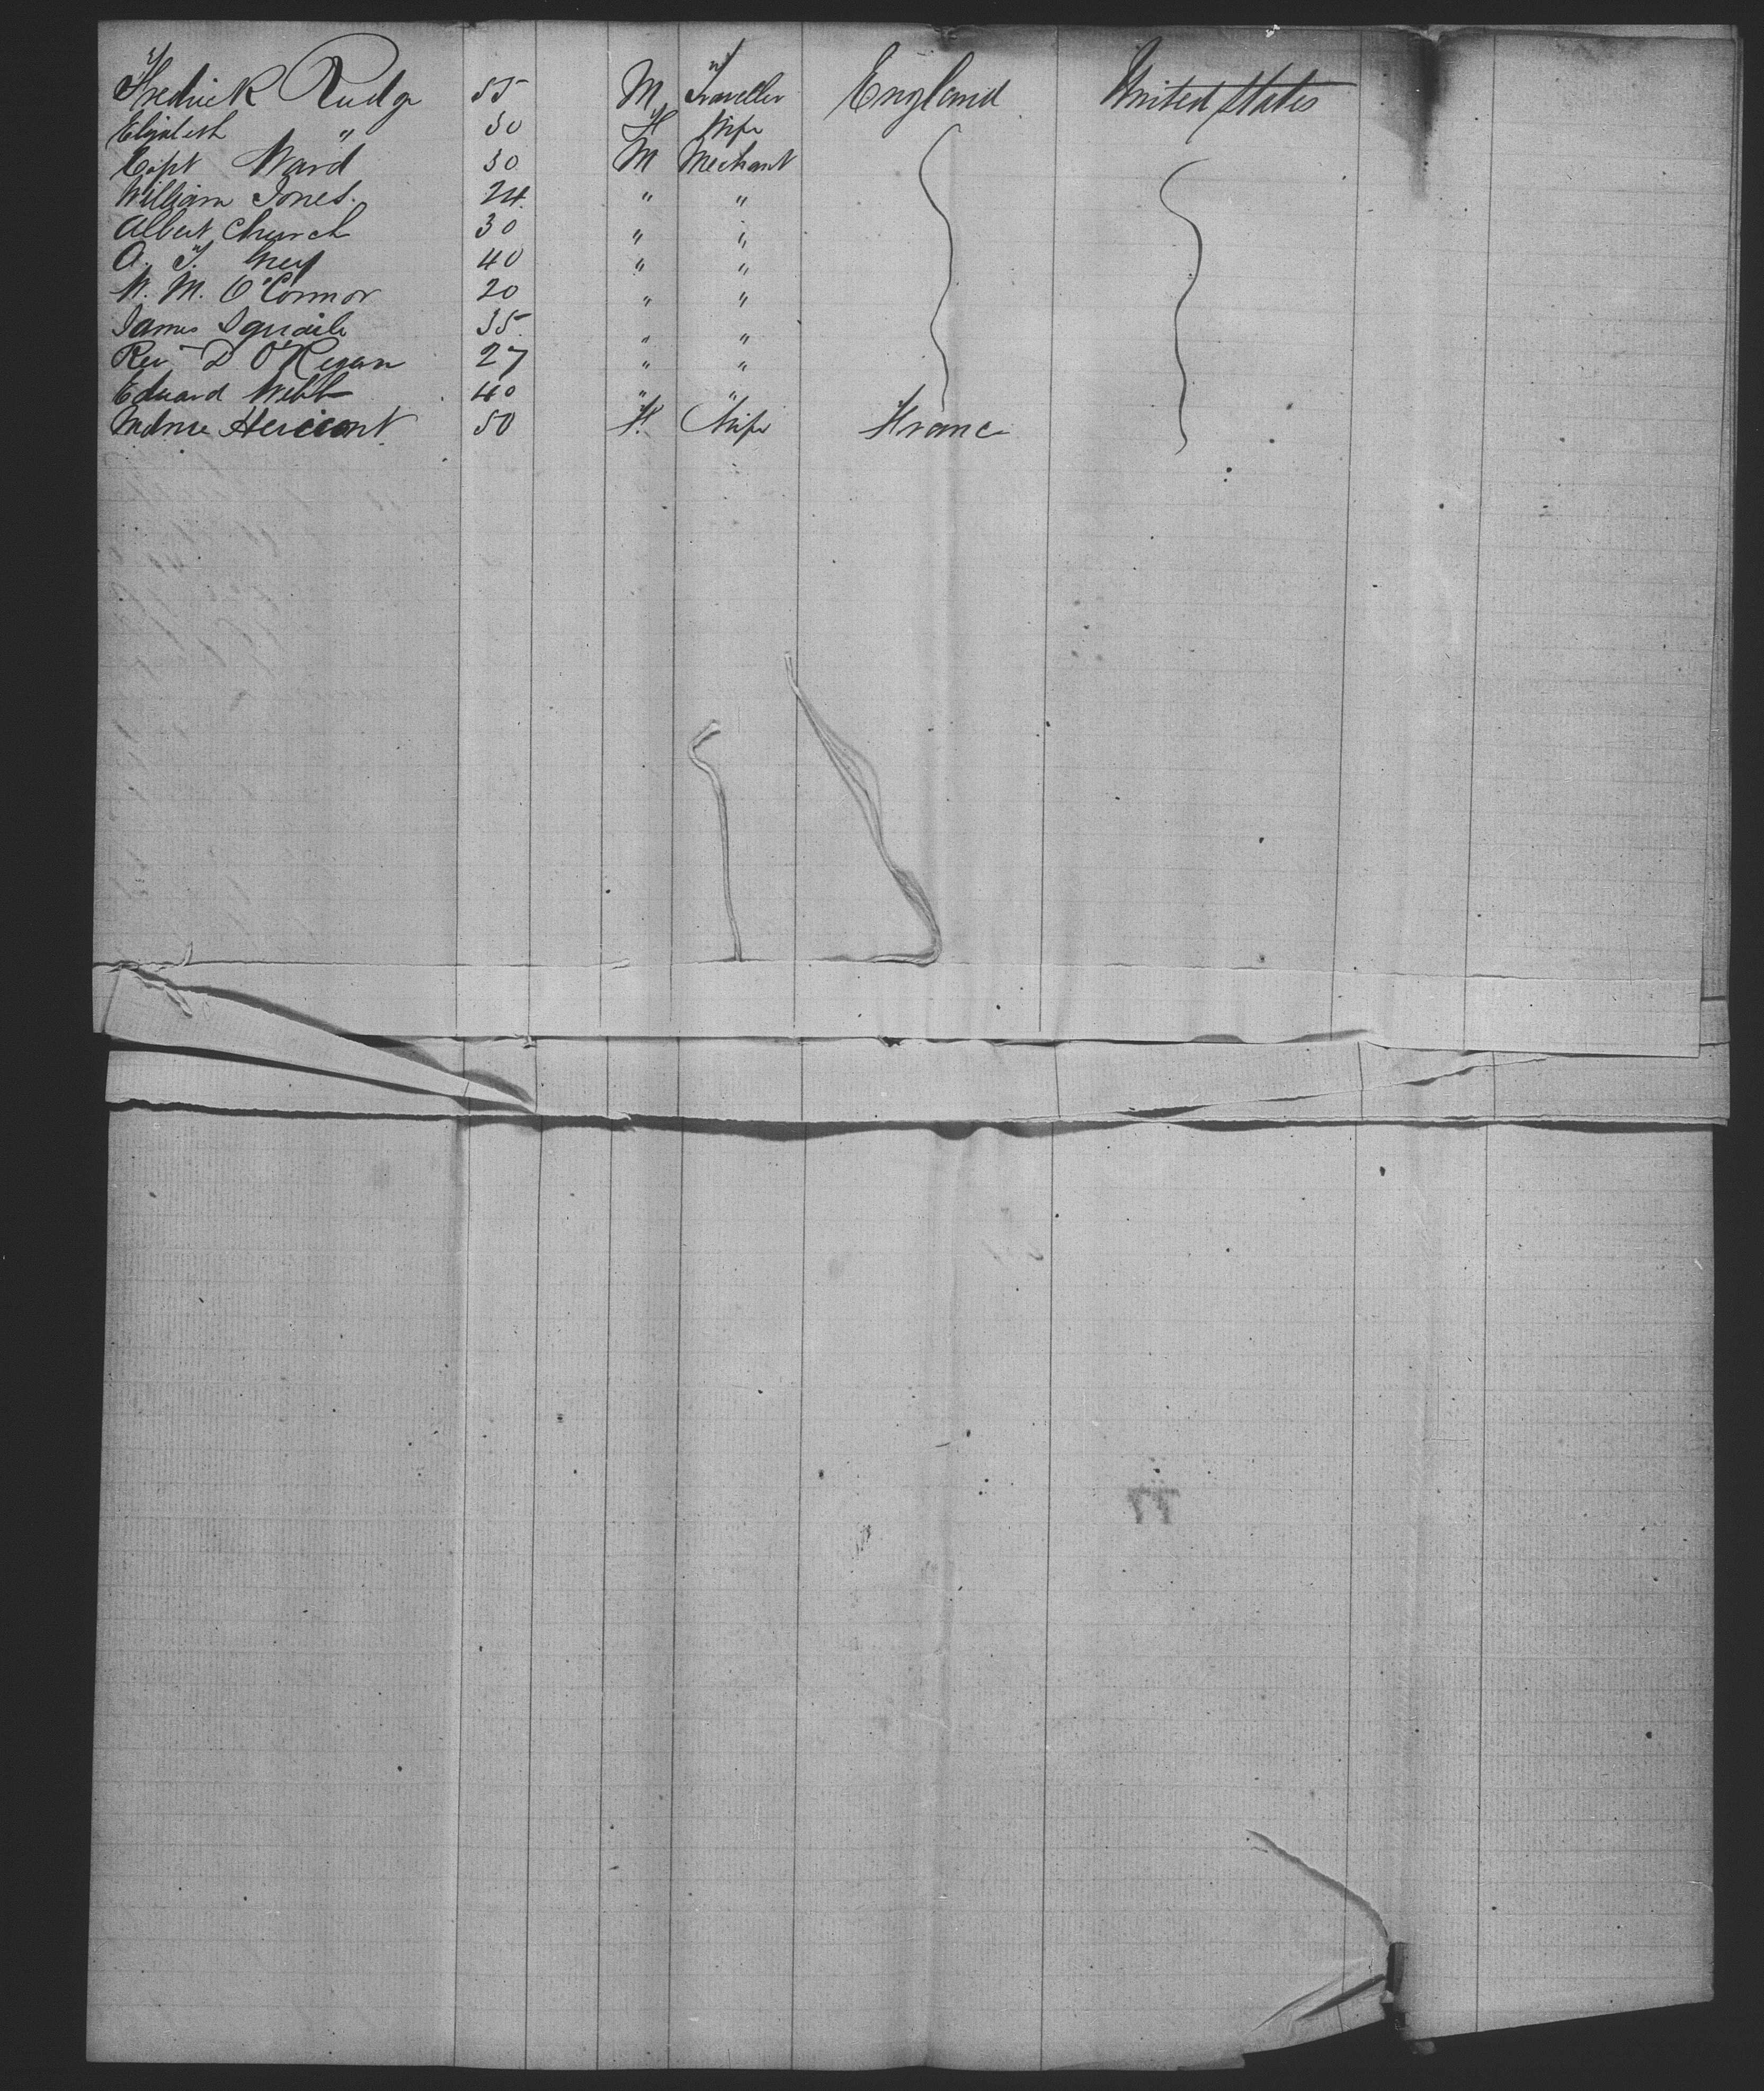 Fredrick Rudge 55 M Traveller England United States
Elizabeth " 30 F Wife
Capt Ward 30 M Merchant
William Jones. 24. " "
Albert Church 30 " "
A. T. Grey 40 " "
W. M. O'Connor 20 " "
James 35 " "
Rev D O'Regan 27 " "
Edward Webb 40 " "
50 F. Wife France
77